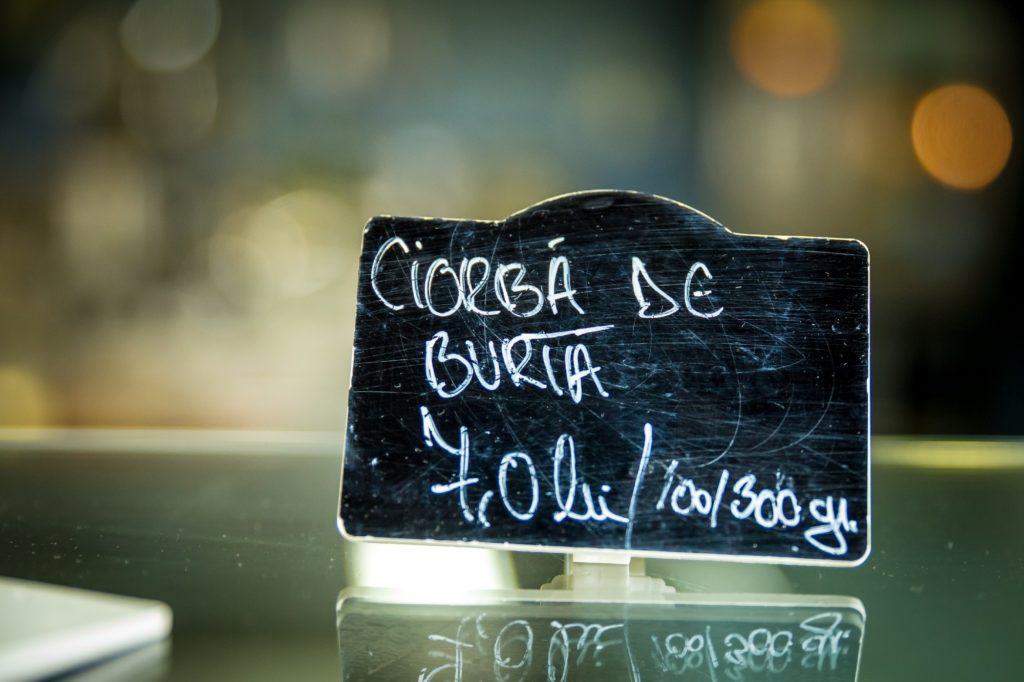 CIORBĂ DE
BURTA
7,0 lei/100/300 gr.